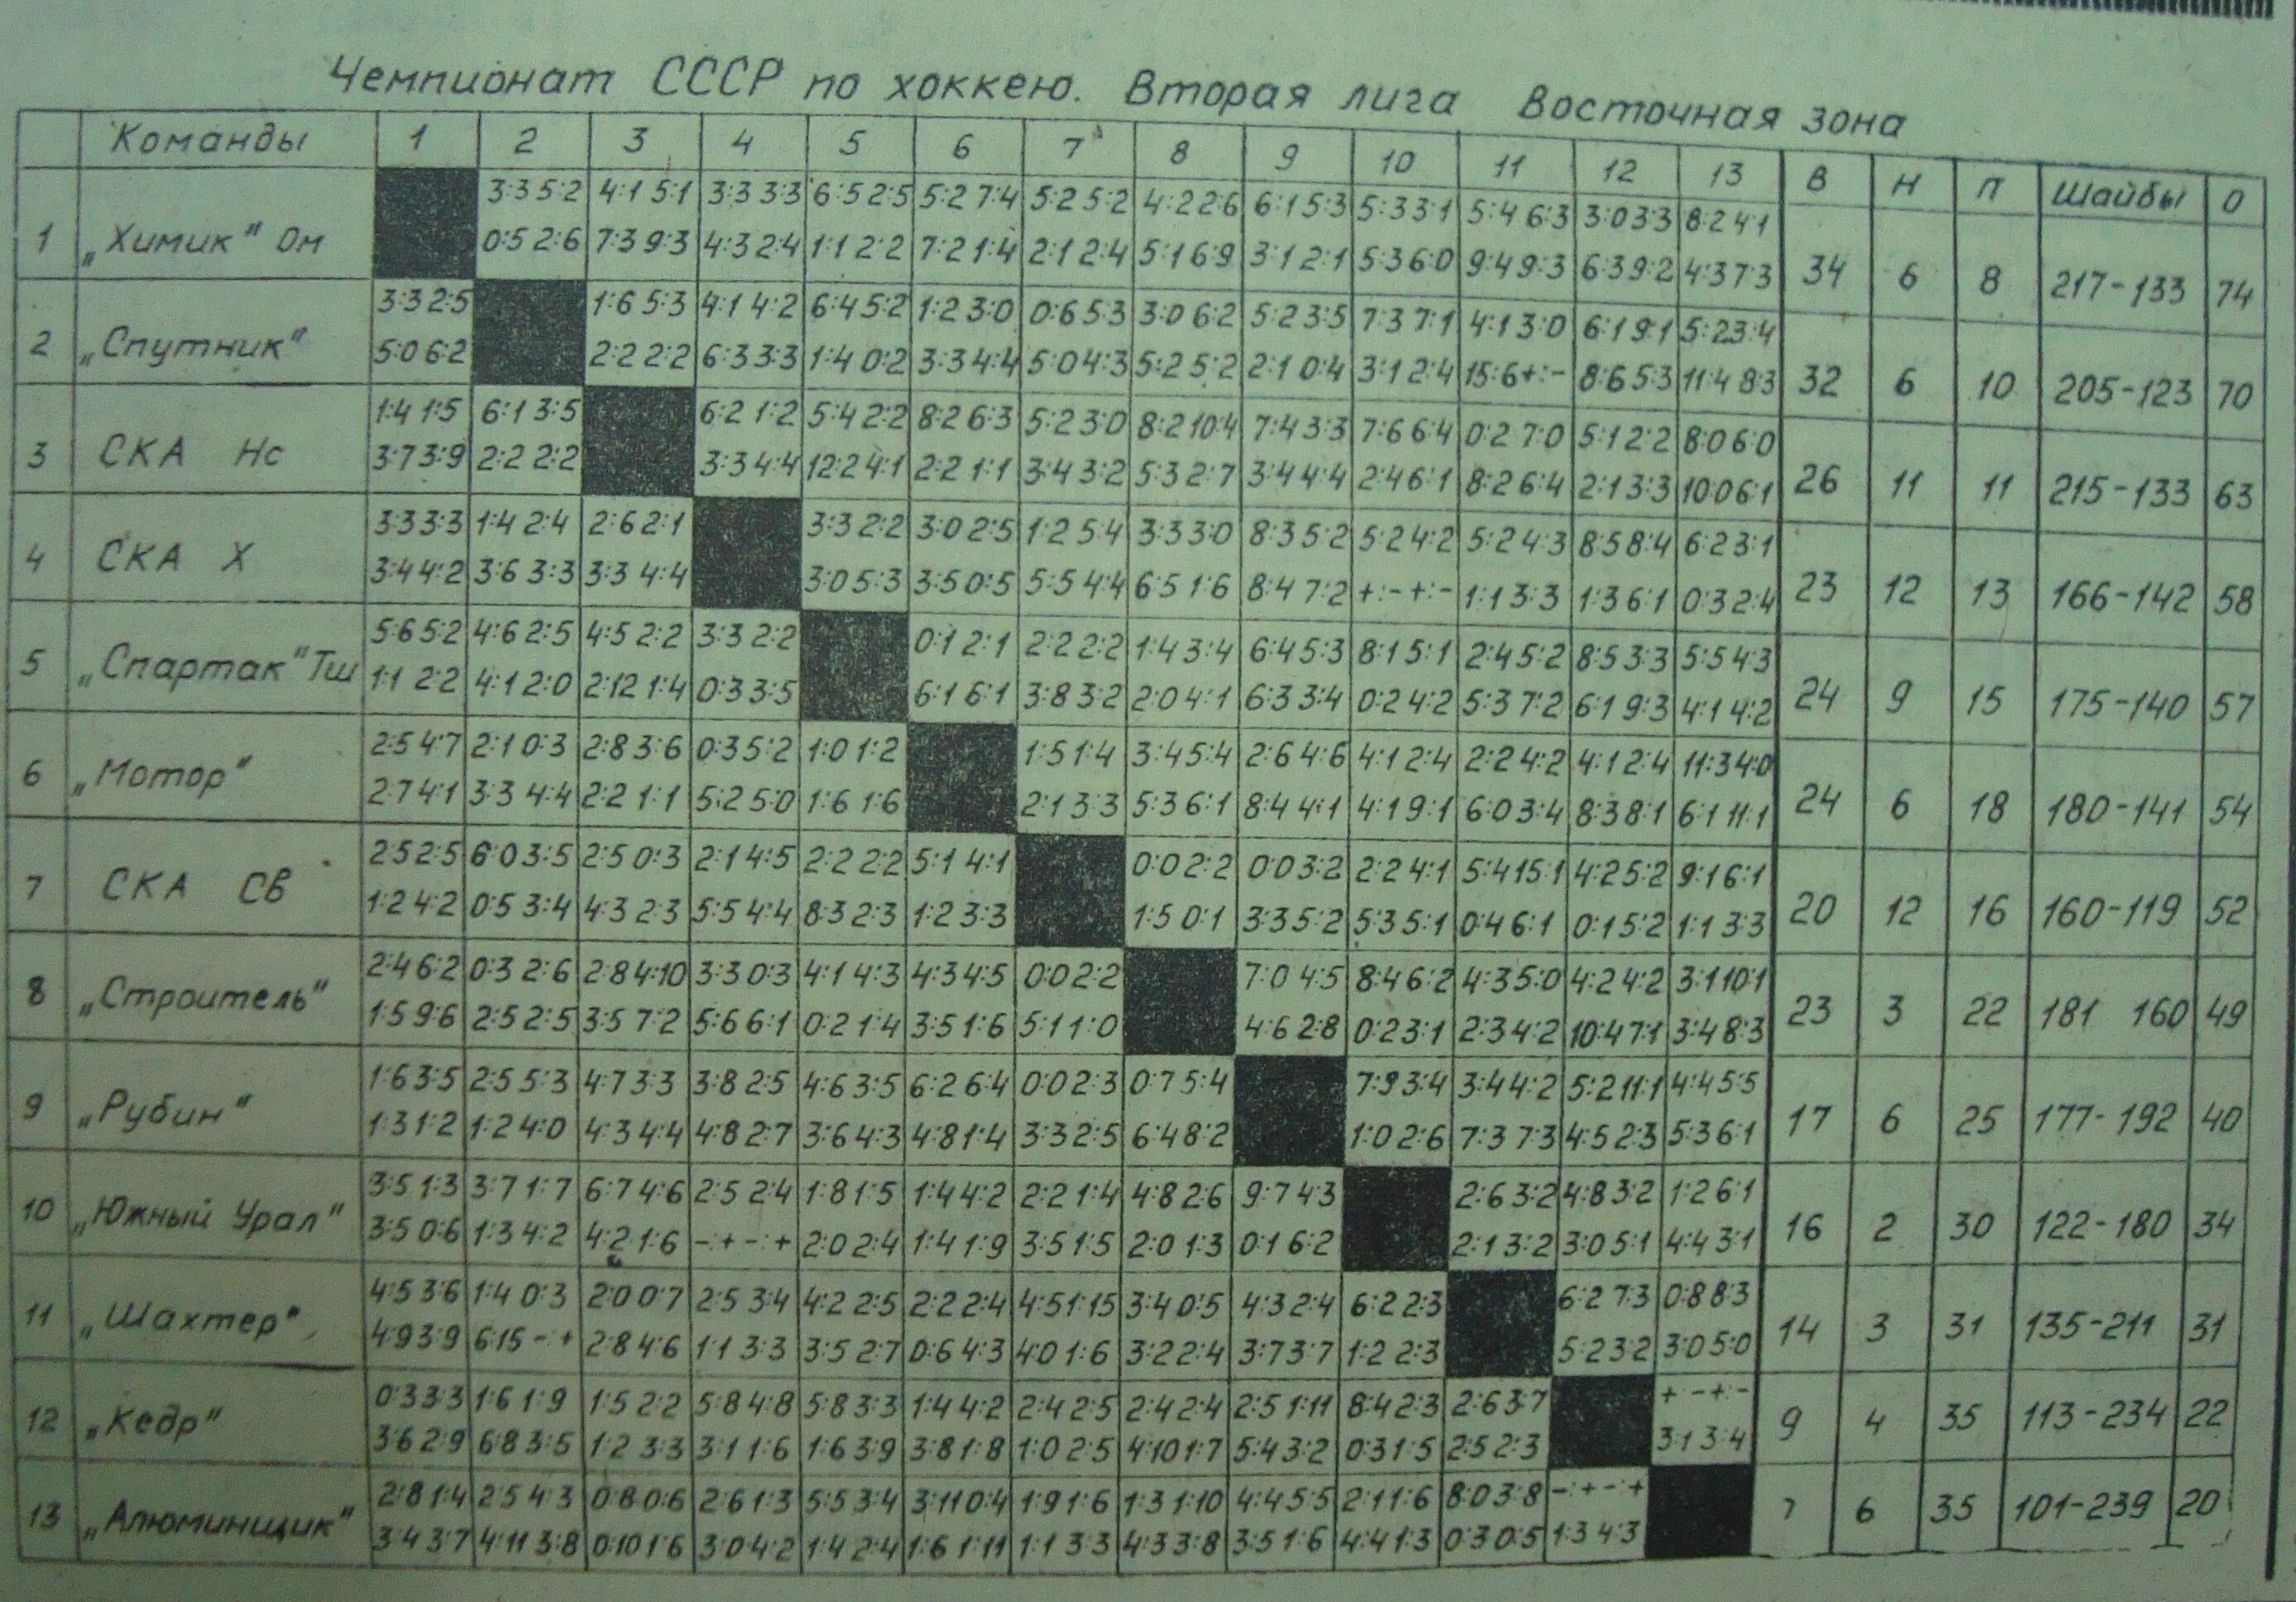 Чемпионат СССР по хоккею. Вторая лига Восточная зона
Команды 1 2 3 4 5 6 7 8 9 10 11 12 13 В Н П Шайбы О
3:3 5:2 4:1 5:1 3:3 3:3 6:5 2:5 5:2 7:4 5:2 5:2 4:2 2:6 6:1 5:3 5:3 3:1 5:4 6:3 3:0 3:3 8:2 4:1
1 „Химик" Ом 0:5 2:6 7:3 9:3 4:3 2:4 1:1 2:2 7:2 1:4 2:1 2:4 5:1 6:9 3:1 2:1 5:3 6:0 9:4 9:3 6:3 9:2 4:3 7:3 34 6 8 217-133 74
3:3 2:5 1:6 5:3 4:1 4:2 6:4 5:2 1:2 3:0 0:6 5:3 3:0 6:2 5:2 3:5 7:3 7:1 4:1 3:0 6:1 9:1 5:2 3:4
2 „Спутник" 5:0 6:2 2:2 2:2 6:3 3:3 1:4 0:2 3:3 4:4 5:0 4:3 5:2 5:2 2:1 0:4 3:1 2:4 15:6 +:- 8:6 5:3 11:4 8:3 32 6 10 205-123 70
1:4 1:5 6:1 3:5 6:2 1:2 5:4 2:2 8:2 6:3 5:2 3:0 8:2 10:4 7:4 3:3 7:6 6:4 0:2 7:0 5:1 2:2 8:0 6:0
3 СКА Нс 3:7 3:9 2:2 2:2 3:3 4:4 12:2 4:1 2:2 1:1 3:4 3:2 5:3 2:7 3:4 4:4 2:4 6:1 8:2 6:4 2:1 3:3 10:0 6:1 26 11 11 215-133 63
3:3 3:3 1:4 2:4 2:6 2:1 3:3 2:2 3:0 2:5 1:2 5:4 3:3 3:0 8:3 5:2 5:2 4:2 5:2 4:3 8:5 8:4 6:2 3:1
4 СКА Х 3:4 4:2 3:6 3:3 3:3 4:4 3:0 5:3 3:5 0:5 5:5 4:4 6:5 1:6 8:4 7:2 +:- +:- 1:1 3:3 1:3 6:1 0:3 2:4 23 12 13 166-142 58
5:6 5:2 4:6 2:5 4:5 2:2 3:3 2:2 0:1 2:1 2:2 2:2 1:4 3:4 6:4 5:3 8:1 5:1 2:4 5:2 8:5 3:3 5:5 4:3
5 „Спартак" Тш 1:1 2:2 4:1 2:0 2:12 1:4 0:3 3:5 6:1 6:1 3:8 3:2 2:0 4:1 6:3 3:4 0:2 4:2 5:3 7:2 6:1 9:3 4:1 4:2 24 9 15 175-140 57
2:5 4:7 2:1 0:3 2:8 3:6 0:3 5:2 1:0 1:2 1:5 1:4 3:4 5:4 2:6 4:6 4:1 2:4 2:2 4:2 4:1 2:4 11:3 4:0
6 „Мотор" 2:7 4:1 3:3 4:4 2:2 1:1 5:2 5:0 1:6 1:6 2:1 3:3 5:3 6:1 8:4 4:1 4:1 9:1 6:0 3:4 8:3 8:1 6:1 11:1 24 6 18 180-141 54
2:5 2:5 6:0 3:5 2:5 0:3 2:1 4:5 2:2 2:2 5:1 4:1 0:0 2:2 0:0 3:2 2:2 4:1 5:4 15:1 4:2 5:2 9:1 6:1
7 СКА Св 1:2 4:2 0:5 3:4 4:3 2:3 5:5 4:4 8:3 2:3 1:2 3:3 1:5 0:1 3:3 5:2 5:3 5:1 0:4 6:1 0:1 5:2 1:1 3:3 20 12 16 160-119 52
2:4 6:2 0:3 2:6 2:8 4:10 3:3 0:3 4:1 4:3 4:3 4:5 0:0 2:2 7:0 4:5 8:4 6:2 4:3 5:0 4:2 4:2 3:1 10:1
8 „Строитель" 1:5 9:6 2:5 2:5 3:5 7:2 5:6 6:1 0:2 1:4 3:5 1:6 5:1 1:0 4:6 2:8 0:2 3:1 2:3 4:2 10:4 7:1 3:4 8:3 23 3 22 181 160 49
1:6 3:5 2:5 5:3 4:7 3:3 3:8 2:5 4:6 3:5 6:2 6:4 0:0 2:3 0:7 5:4 7:9 3:4 3:4 4:2 5:2 11:1 4:4 5:5
9 „Рубин" 1:3 1:2 1:2 4:0 4:3 4:4 4:8 2:7 3:6 4:3 4:8 1:4 3:3 2:5 6:4 8:2 1:0 2:6 7:3 7:3 4:5 2:3 5:3 6:1 17 6 25 177-192 40
3:5 1:3 3:7 1:7 6:7 4:6 2:5 2:4 1:8 1:5 1:4 4:2 2:2 1:4 4:8 2:6 9:7 4:3 2:6 3:2 4:8 3:2 1:2 6:1
10 „Южный Урал" 3:5 0:6 1:3 4:2 4:2 1:6 -:+ -:+ 2:0 2:4 1:4 1:9 3:5 1:5 2:0 1:3 0:1 6:2 2:1 3:2 3:0 5:1 4:4 3:1 16 2 30 122-180 34
4:5 3:6 1:4 0:3 2:0 0:7 2:5 3:4 4:2 2:5 2:2 2:4 4:5 1:15 3:4 0:5 4:3 2:4 6:2 2:3 6:2 7:3 0:8 8:3
11 „Шахтер" 4:9 3:9 6:15 -:+ 2:8 4:6 1:1 3:3 3:5 2:7 0:6 4:3 4:0 1:6 3:2 2:4 3:7 3:7 1:2 2:3 5:2 3:2 3:0 5:0 14 3 31 135-211 31
0:3 3:3 1:6 1:9 1:5 2:2 5:8 4:8 5:8 3:3 1:4 4:2 2:4 2:5 2:4 2:4 2:5 1:11 8:4 2:3 2:6 3:7 +:- +:-
12 „Кедр" 3:6 2:9 6:8 3:5 1:2 3:3 3:1 1:6 1:6 3:9 3:8 1:8 1:0 2:5 4:10 1:7 5:4 3:2 0:3 1:5 2:5 2:3 3:1 3:4 9 4 35 113-234 22
2:8 1:4 2:5 4:3 0:8 0:6 2:6 1:3 5:5 3:4 3:11 0:4 1:9 1:6 1:3 1:10 4:4 5:5 2:1 1:6 8:0 3:8 -:+ -:+
13 „Алюминщик" 3:4 3:7 4:11 3:8 0:10 1:6 3:0 4:2 1:4 2:4 1:6 1:11 1:1 3:3 4:3 3:8 3:5 1:6 4:4 1:3 0:3 0:5 1:3 4:3 7 6 35 101-239 20